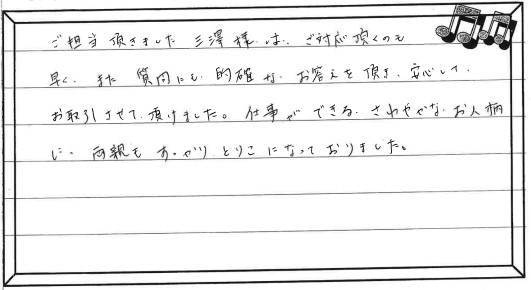 ご担当頂きました三澤様は、ご対応頂くのも
早く、また質問にも的確なお答えを頂き、安心して、
お取引させて頂けました。仕事ができる、さわやかなお人柄
に、両親もすっかりとりこになっておりました。